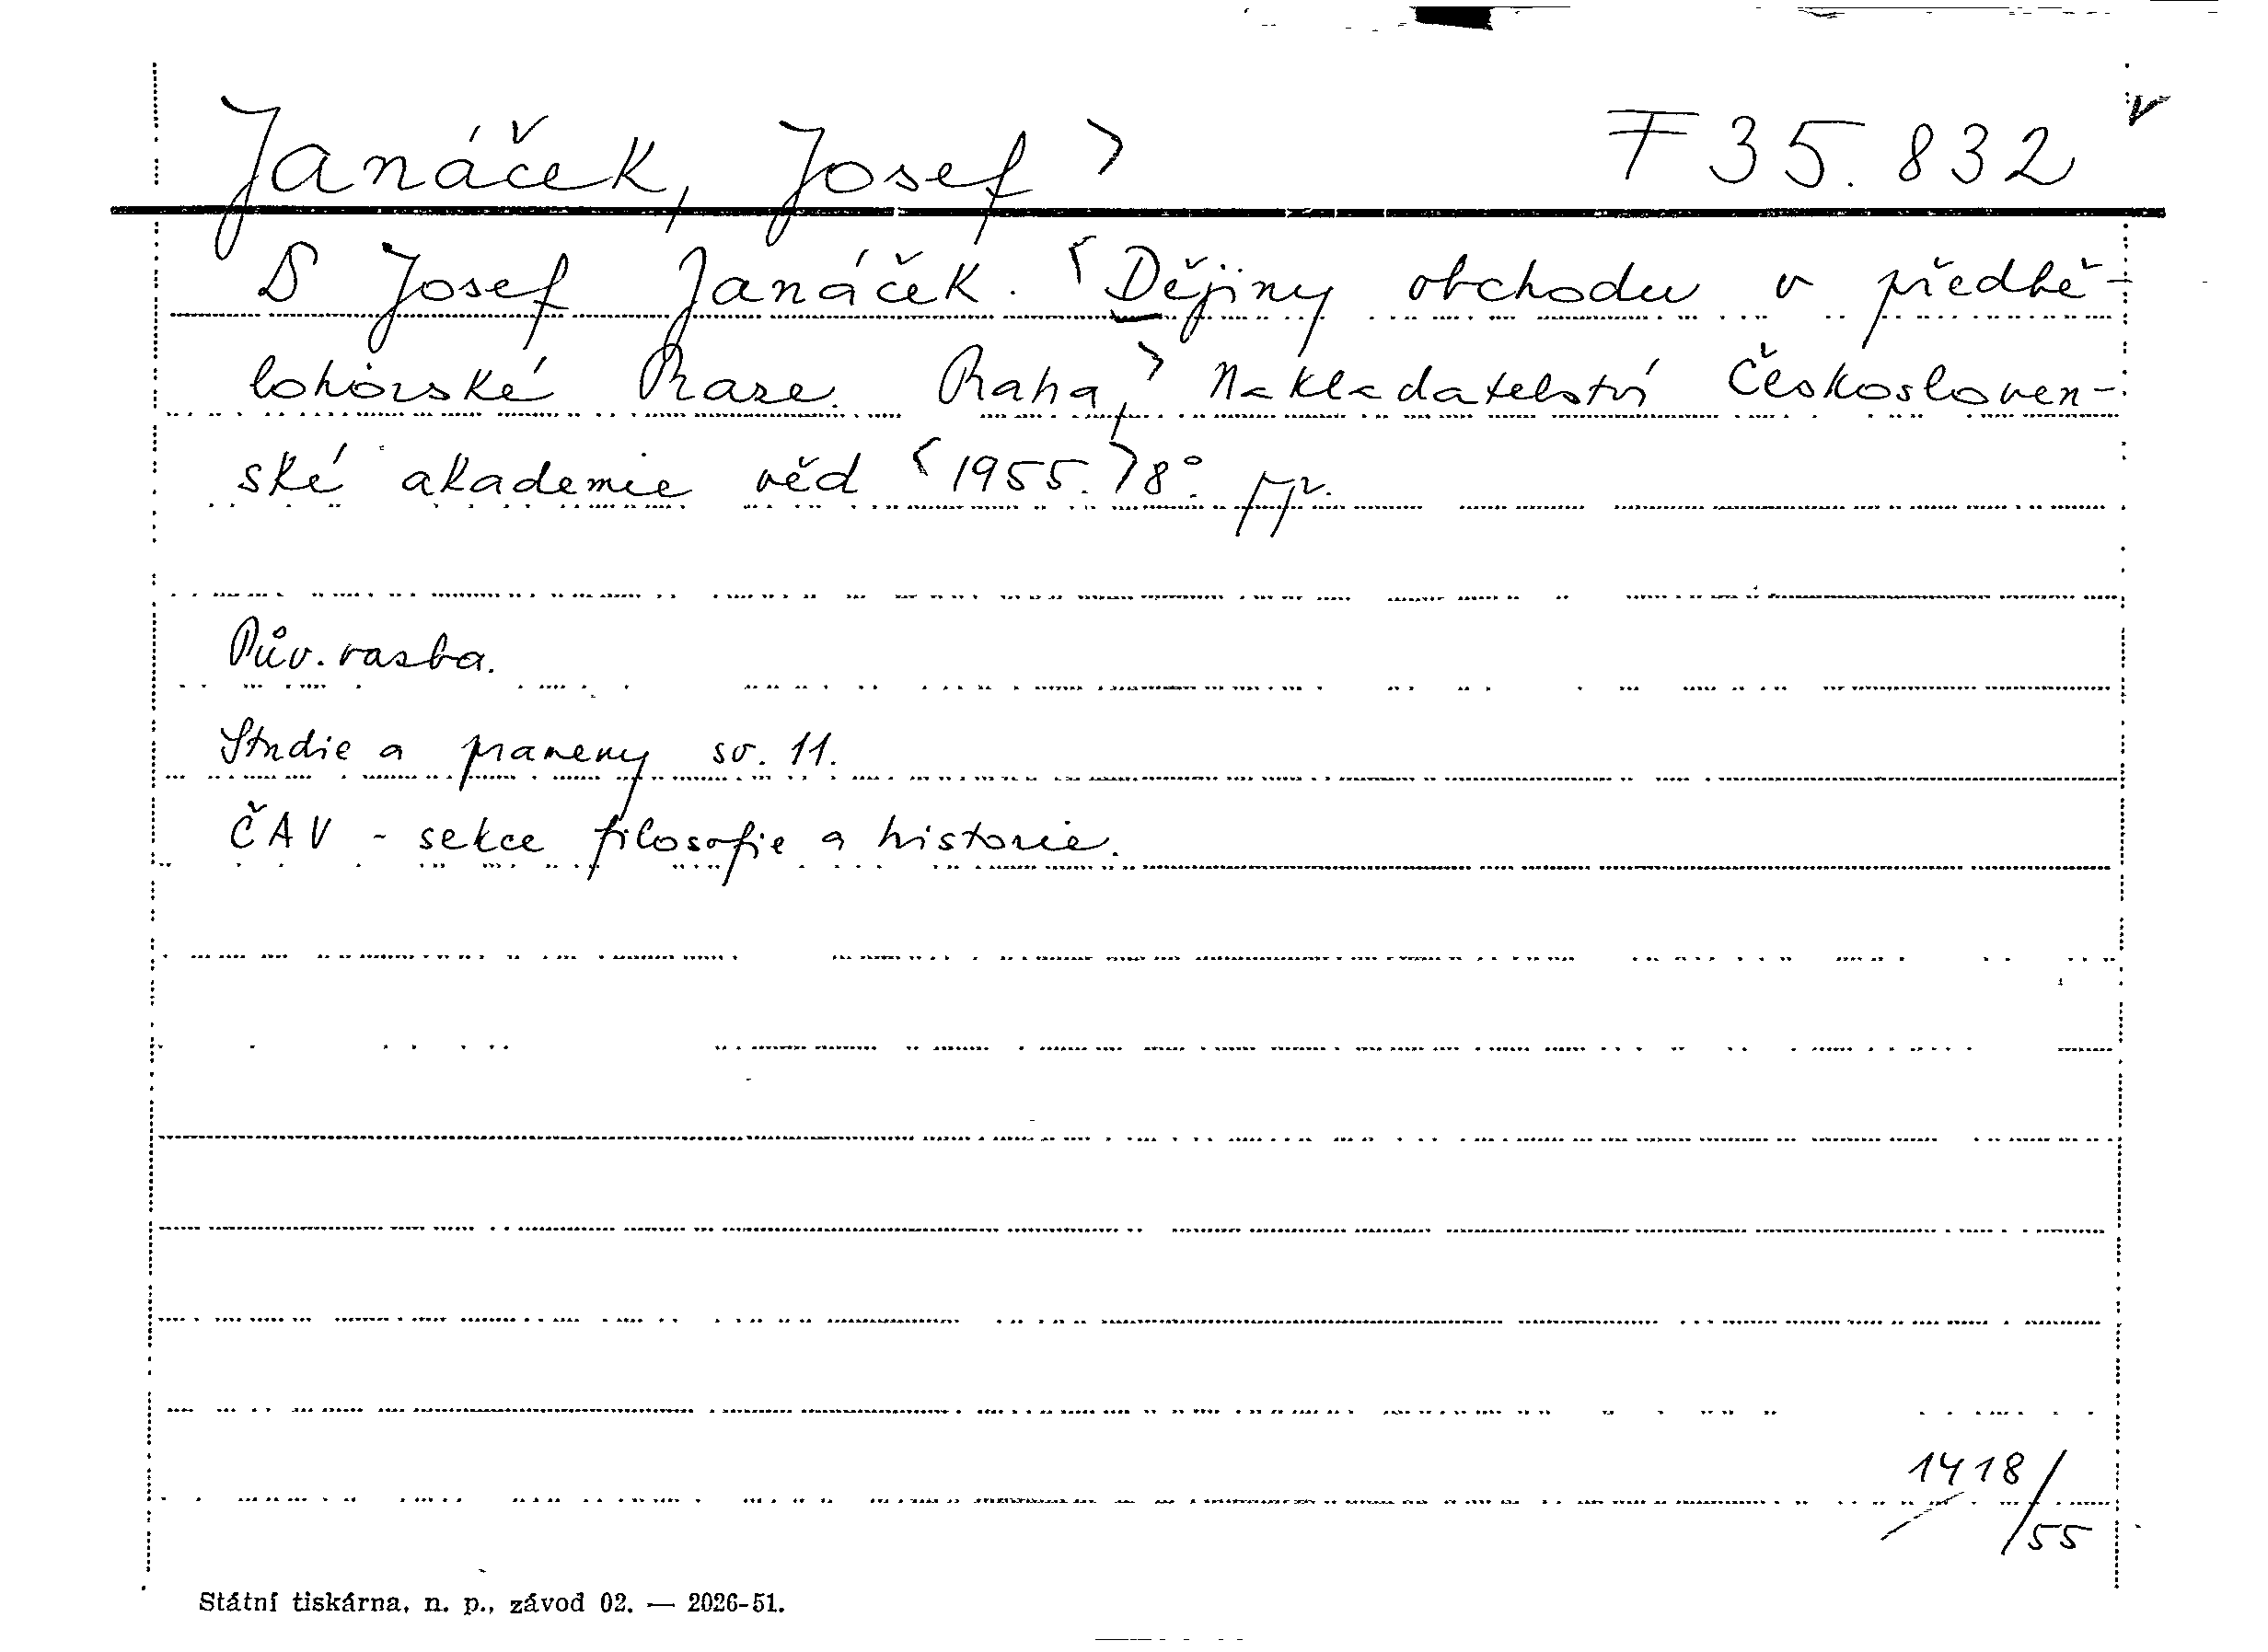 Janáček, Josef > F 35.832
D Josef Janáček. <Dějiny obchodu v předbě-
lohorské Praze. Praha,> Nakladatelství Českosloven-
ské akademie věd <1955.> 8°.
Pův. vazba.
Studie a prameny sv. 11.
ČAV - sekce filosofie a historie.
1418/55
Státní tiskárna, n. p., závod 02. — 2026-51.